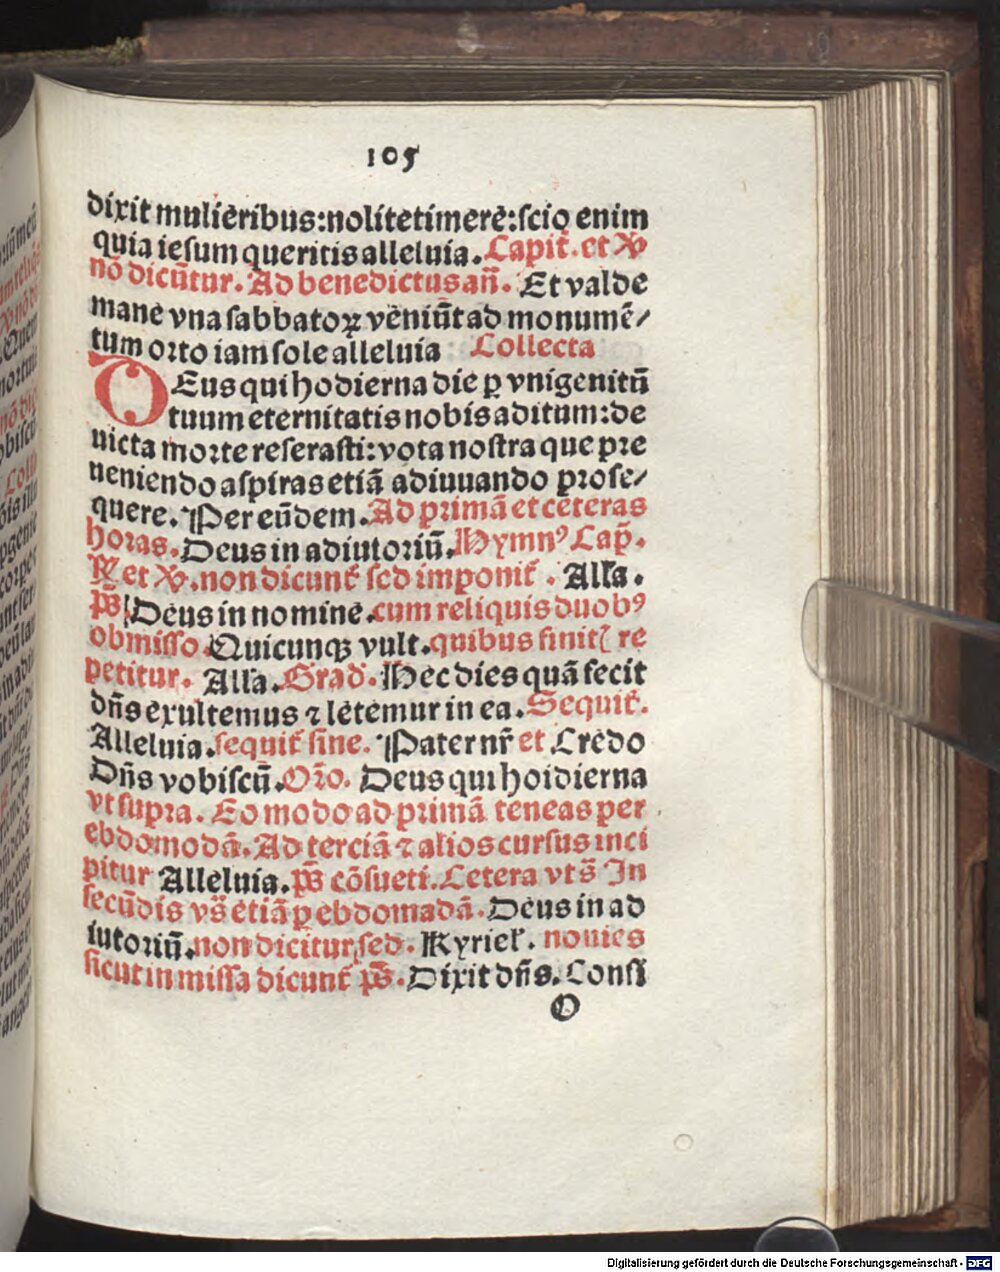 105
dixit mulieribus:nolite timere:scio enim
quia iesum queritis alleluia. Capit̄. et ℣
nō dicūtur. Ad benedictus an̄. Et valde
mane vna sabbatoꝝ veniūt ad monumē/
tum orto iam sole alleluia Collecta
DEus qui hodierna die ꝑ vnigenitū
tuum eternitatis nobis aditum:de
uicta morte reserasti:vota nostra que pre
ueniendo aspiras etiā adiuuando prose/
quere. Per eūdem. Ad primā et ceteras
horas. Deus in adiutoriū. Hymnꝰ Cap̄.
℟ et ℣. non dicunt̄ sed imponit̄. All'a.
ps̄ Deus in nomine. cum reliquis duobꝰ
obmisso. Quicunqꝫ vult. quibus finit̄ re
petitur. All'a. Grad̄. Hec dies quā fecit
dn̄s exultemus ⁊ letemur in ea. Sequit̄.
Alleluia. sequit̄ sine. Pater nr̄ et Credo
Dn̄s vobiscū. Or̄o. Deus qui hoidierna
vt supra. Eo modo ad primā teneas per
ebdomodā. Ad terciā ⁊ alios cursus inci
pitur Alleluia. ps̄ cōsueti. Cetera vt s̄ In
secūdis vs̄ etiā ꝑ ebdomadā. Deus in ad
iutoriū. non dicitur, sed. Kyriel'. nouies
sicut in missa dicunt̄ ps̄. Dixit dn̄s. Consi
O
Digitalisierung gefördert durch die Deutsche Forschungsgemeinschaft - DFG